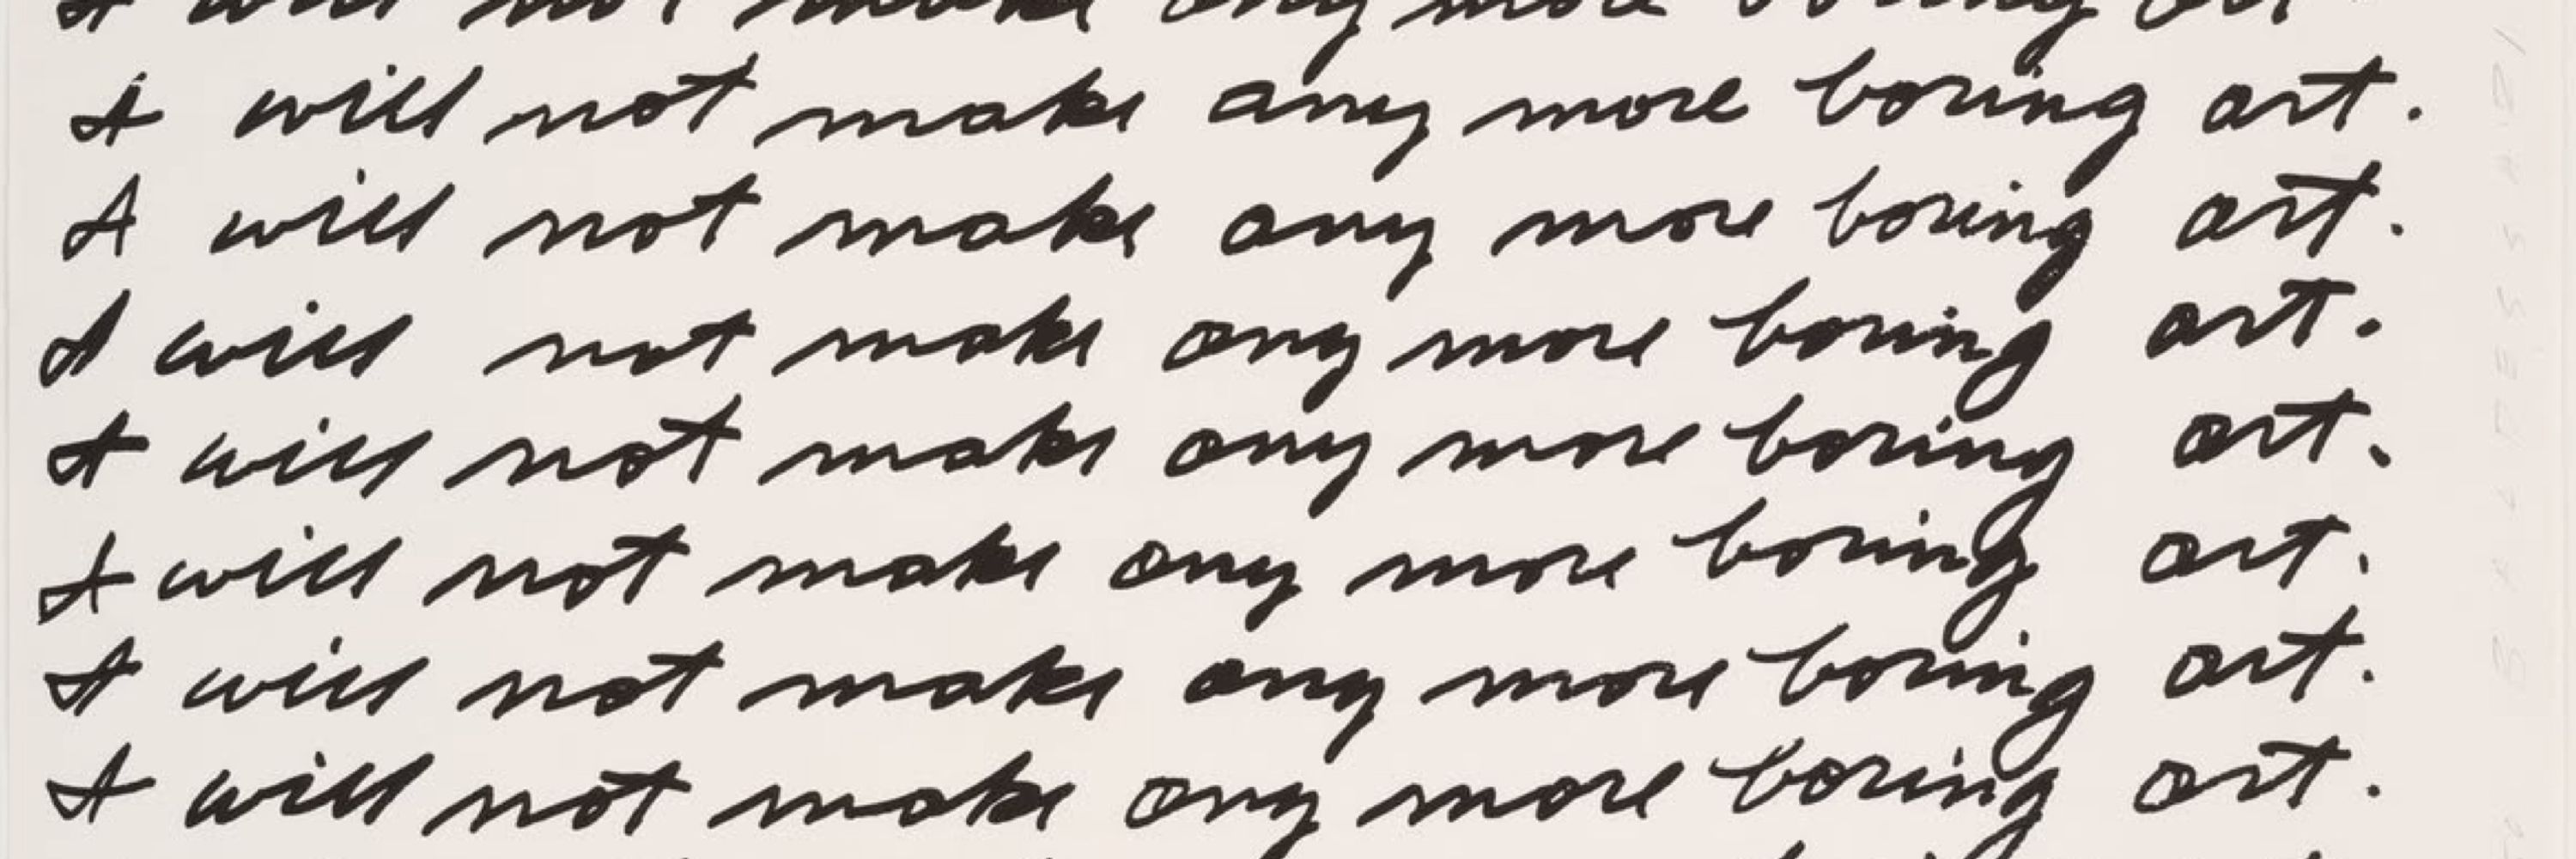 I will not make any more boring art.
I will not make any more boring art.
I will not make any more boring art.
I will not make any more boring art.
I will not make any more boring art.
I will not make any more boring art.
I will not make any more boring art.
I will not make any more boring art.